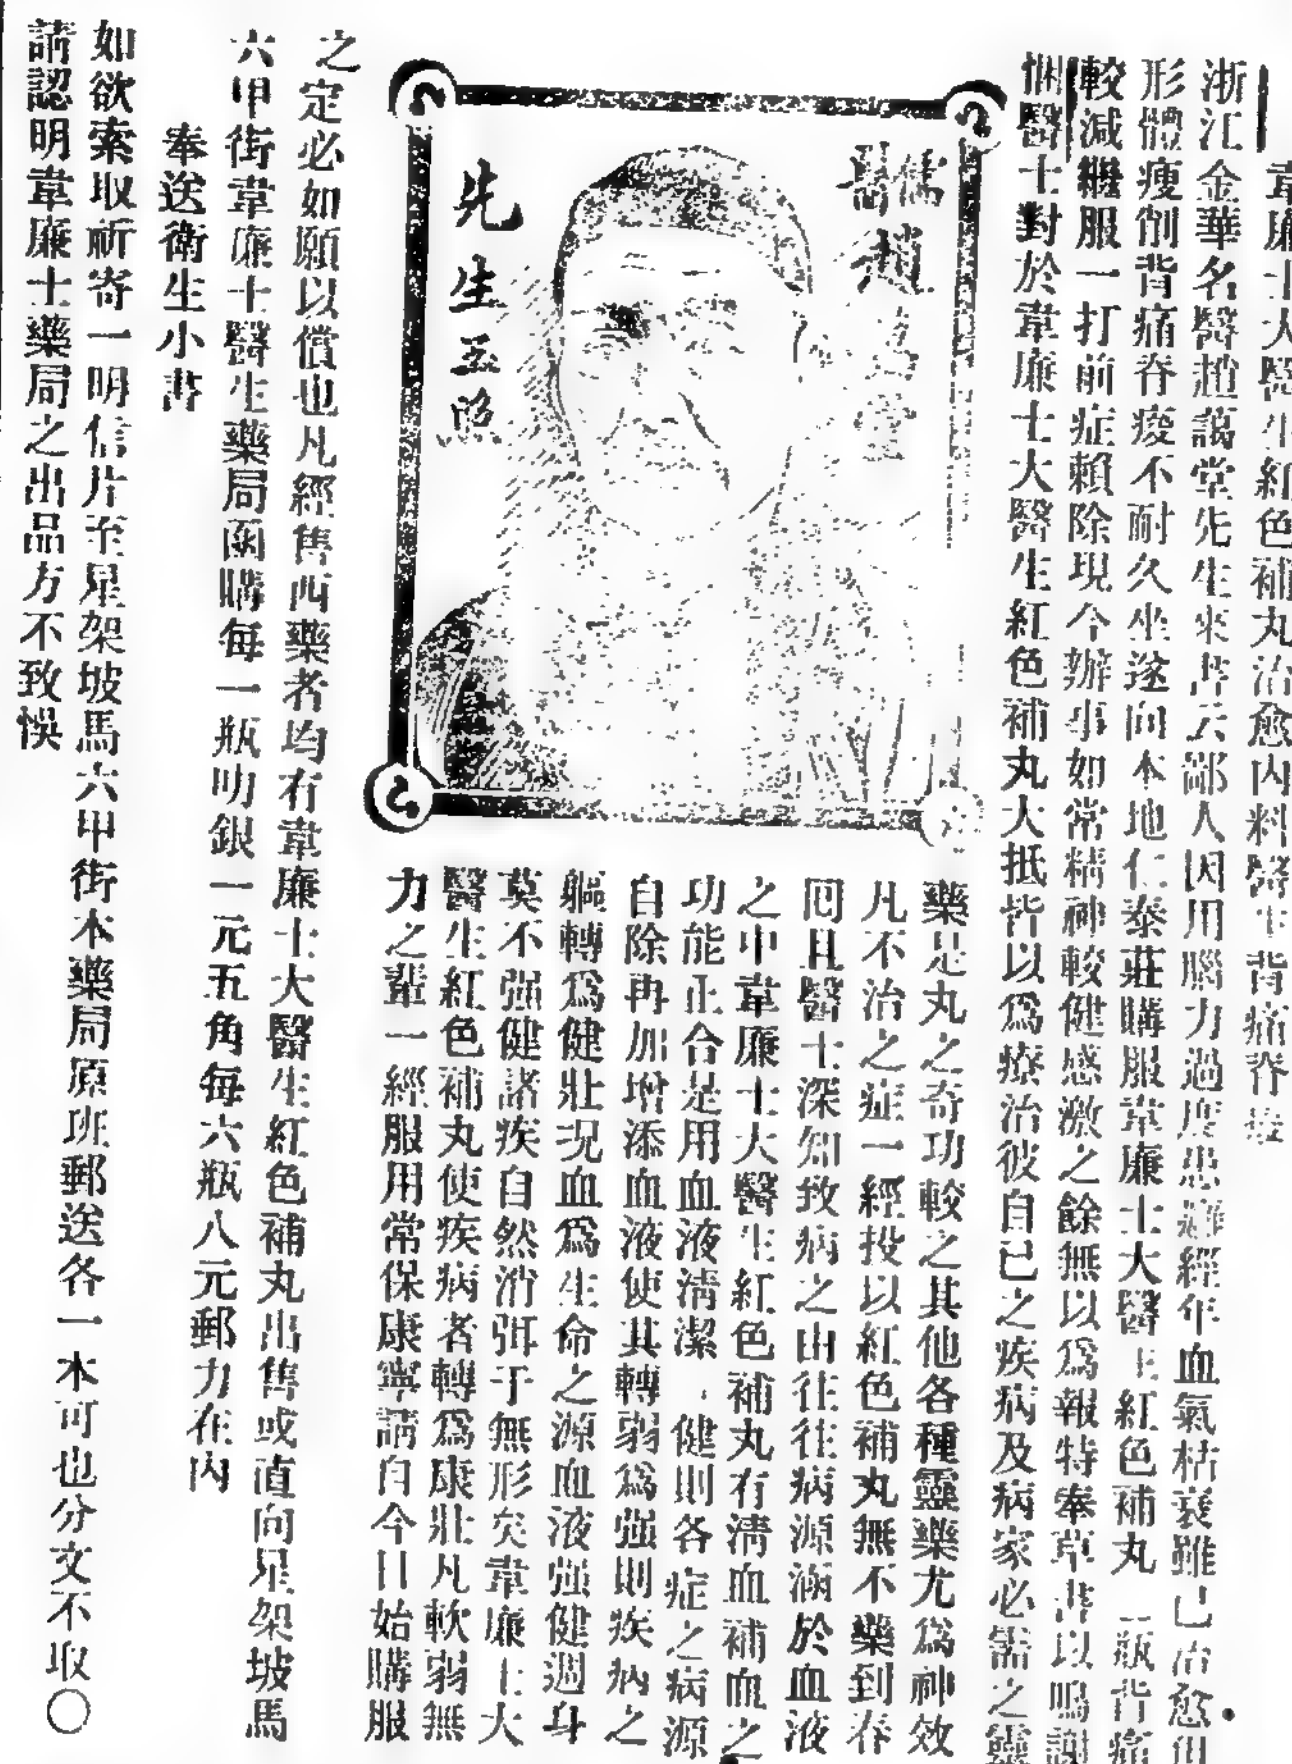 韋廉士大醫生紅色補丸治愈內科醫生背痛脊
浙江金華名醫趙藹堂先生來書云鄙人因用腦力過度患瘧經年血氣枯衰雖已治愈但
形體瘦削背痛脊痠不耐久坐遂向本地仁泰莊購服韋廉士大醫生紅色補丸一瓶背痛
較減繼服一打前症賴除現今辦事如常精神較健感激之餘無以爲報特奉草書以鳴謝
悃醫士對於韋廉士大醫生紅色補丸大抵皆以爲療治彼自已之疾病及病家必需之靈
儒醫趙藹堂
先生玉照
藥是丸之奇功較之其他各種靈藥尤爲神效
凡不治之症一經投以紅色補丸無不藥到春
囘且醫士深知致病之由往往病源滿於血液
之中韋廉士大醫生紅色補丸有清血補血之
功能正合是用血液清潔健則各症之病源
自除再加增添血液使其轉弱爲强則疾病之
軀轉爲健壯况血爲生命之源血液强健週身
莫不强健諸疾自然消弭于無形矣韋廉士大
醫生紅色補丸使疾病者轉爲康壯凡軟弱無
力之輩一經服用常保康寧請自今日始購服
之定必如願以償也凡經售西藥者均有韋廉士大醫生紅色補丸出售或直向星架坡馬
六甲街韋廉士醫生藥局函購每一瓶叻銀一元五角每六瓶八元郵力在內
奉送衛生小書
如欲索取祈寄一明信片至星架坡馬六甲街本藥局原班郵送各一本可也分文不取〇
請認明韋廉士藥局之出品方不致悞